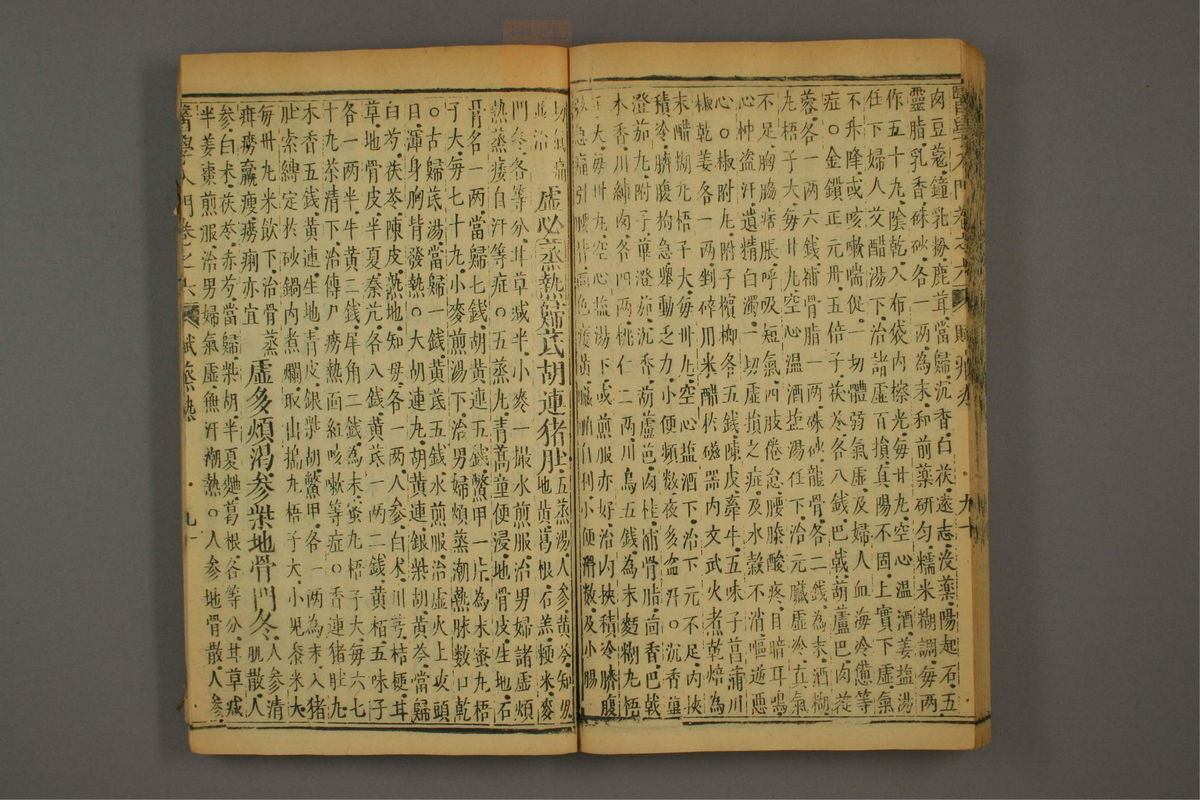 肉豆蔻鐘乳粉鹿茸當歸沉香白茯遠志沒藥陽起石五
靈脂乳香硃砂各一兩為末和前藥研勻糯米糊調每兩
作五十丸陰乾入布袋內擦光每廿丸空心溫酒姜盐湯
任下婦人艾醋湯下治諸虛百損真陽不固上實下虛氣
不升降或咳嗽喘促一切體弱氣虛及婦人血海冷憊等
症○金鎖正元丹五倍子茯苓各八錢巴戟葫蘆巴肉蓯
蓉各一兩六錢補骨脂一兩硃砂龍骨各二錢為末酒糊
丸梧子大每廿丸空心溫酒盐湯任下治元臟虛冷真氣
不足胸膈痞脹呼吸短氣四肢倦怠腰膝酸疼目暗耳鳴
心忡盗汗遺精白濁一切虛損之症及水穀不消嘔逆惡
心○椒附丸附子檳榔各五錢陳皮牽牛五味子菖蒲川
椒乾姜各一兩剉碎用米醋於磁器內文武火煮乾焙為
末醋糊丸梧子大每卅丸空心盐酒下治下元不足內挾
積冷臍腹拘急舉動乏力小便頻數夜多盗汗○沉香蓽
澄茄丸附子蓽澄茄沉香葫蘆芭肉桂補骨脂茴香巴戟
木香川練肉各四兩桃仁二兩川烏五錢為末麪糊丸梧
子大每卅丸空心盐湯下或煎服亦好治內挾積冷臍腹
急痛引腰背面色痿黃臟自利小便滑數及小腸
氣痛
兼治虛必蒸熱歸芪胡連猪肚五蒸湯人參黃芩知母
地黃葛根石羔粳米麥門冬各等分甘草减半小麥一撮水煎服治男婦諸虛煩
熱蒸痿自汗等症○五蒸丸青蒿童便浸地骨皮生地石
膏各一兩當歸七錢胡黃連五錢鱉甲一片為末蜜丸梧
子大每七十丸小麥煎湯下治男婦煩蒸潮熱脉數口乾
○古歸芪湯當歸一錢黃芪五錢水煎服治虛火上攻頭
目渾身胸背發熱○大胡連丸胡黃連銀柴胡黃芩當歸
白芍茯苓陳皮熟地知母各一兩人參白朮川芎桔梗甘
草地骨皮半夏秦艽各八錢黃芪一兩二錢黃栢五味子
各一兩半牛黃三錢犀角二錢為末蜜丸梧子大每六七
十丸茶清下治傳尸癆熱面紅咳嗽等症○香連猪肚丸
木香五錢黃連生地青皮銀柴胡鱉甲各一兩為末入猪
肚索縛定於砂鍋內煮爛取出搗丸梧子大小兒黍米大
每卅丸米飲下治骨蒸疳癆羸瘦癆痢亦宜
虛多煩渴參柴地骨門冬人參清肌散人
參白朮茯苓赤芍當歸柴胡半夏麯葛根各等分甘草减
半姜棗煎服治男婦氣虛無汗潮熱○人參地骨散人參
醫學入門卷之六　賦蒸熱　九一